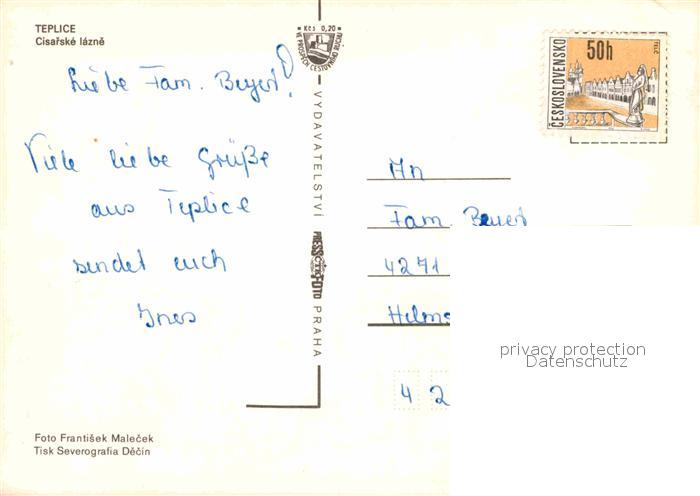 TEPLICE
Cisařské lázně
Liebe Fam. Beyert!
Viele liebe Grüße
aus Teplice
sendet euch
Ines
Kčs 0,20
VE PROSPĚCH CESTOVNÍHO RUCHU
VYDAVATELSTVÍ
PRESSFOTO
PRAHA
ČESKOSLOVENSKO
50h
TELČ
An
Fam. Beyert
4271
Helms
4 2
privacy protection
Datenschutz
Foto František Maleček
Tisk Severografia Děčín